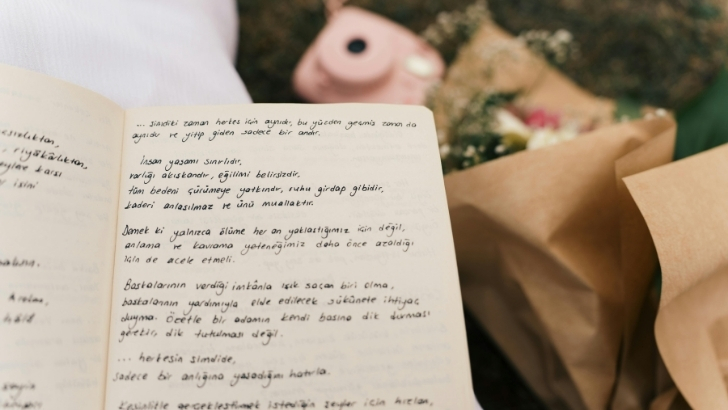 esizlikten,
riyakârlıktan,
şeylere karşı
işini
... şimdiki zaman herkes için aynıdır, bu yüzden geçmiş zaman da
aynıdır ve yitip giden sadece bir andır.
İnsan yaşamı sınırlıdır,
varlığı akışkandır, eğilimi belirsizdir.
tüm bedeni çürümeye yatkındır, ruhu girdap gibidir,
kaderi anlaşılmaz ve ünü muallaktır.
Demek ki yalnızca ölüme her an yaklaştığımız için değil,
anlama ve kavrama yeteneğimiz daha önce azaldığı
için de acele etmeli.
Başkalarının verdiği imkânla ışık saçan biri olma,
başkalarının yardımıyla elde edilecek sükûnete ihtiyaç
duyma. Özetle bir adamın kendi başına dik durması
gerekir, dik tutulması değil.
... herkesin şimdide,
sadece bir anlığına yaşadığını hatırla.
Kesinlikle gerçekleştirmek istediğin şeyler için hızlan,